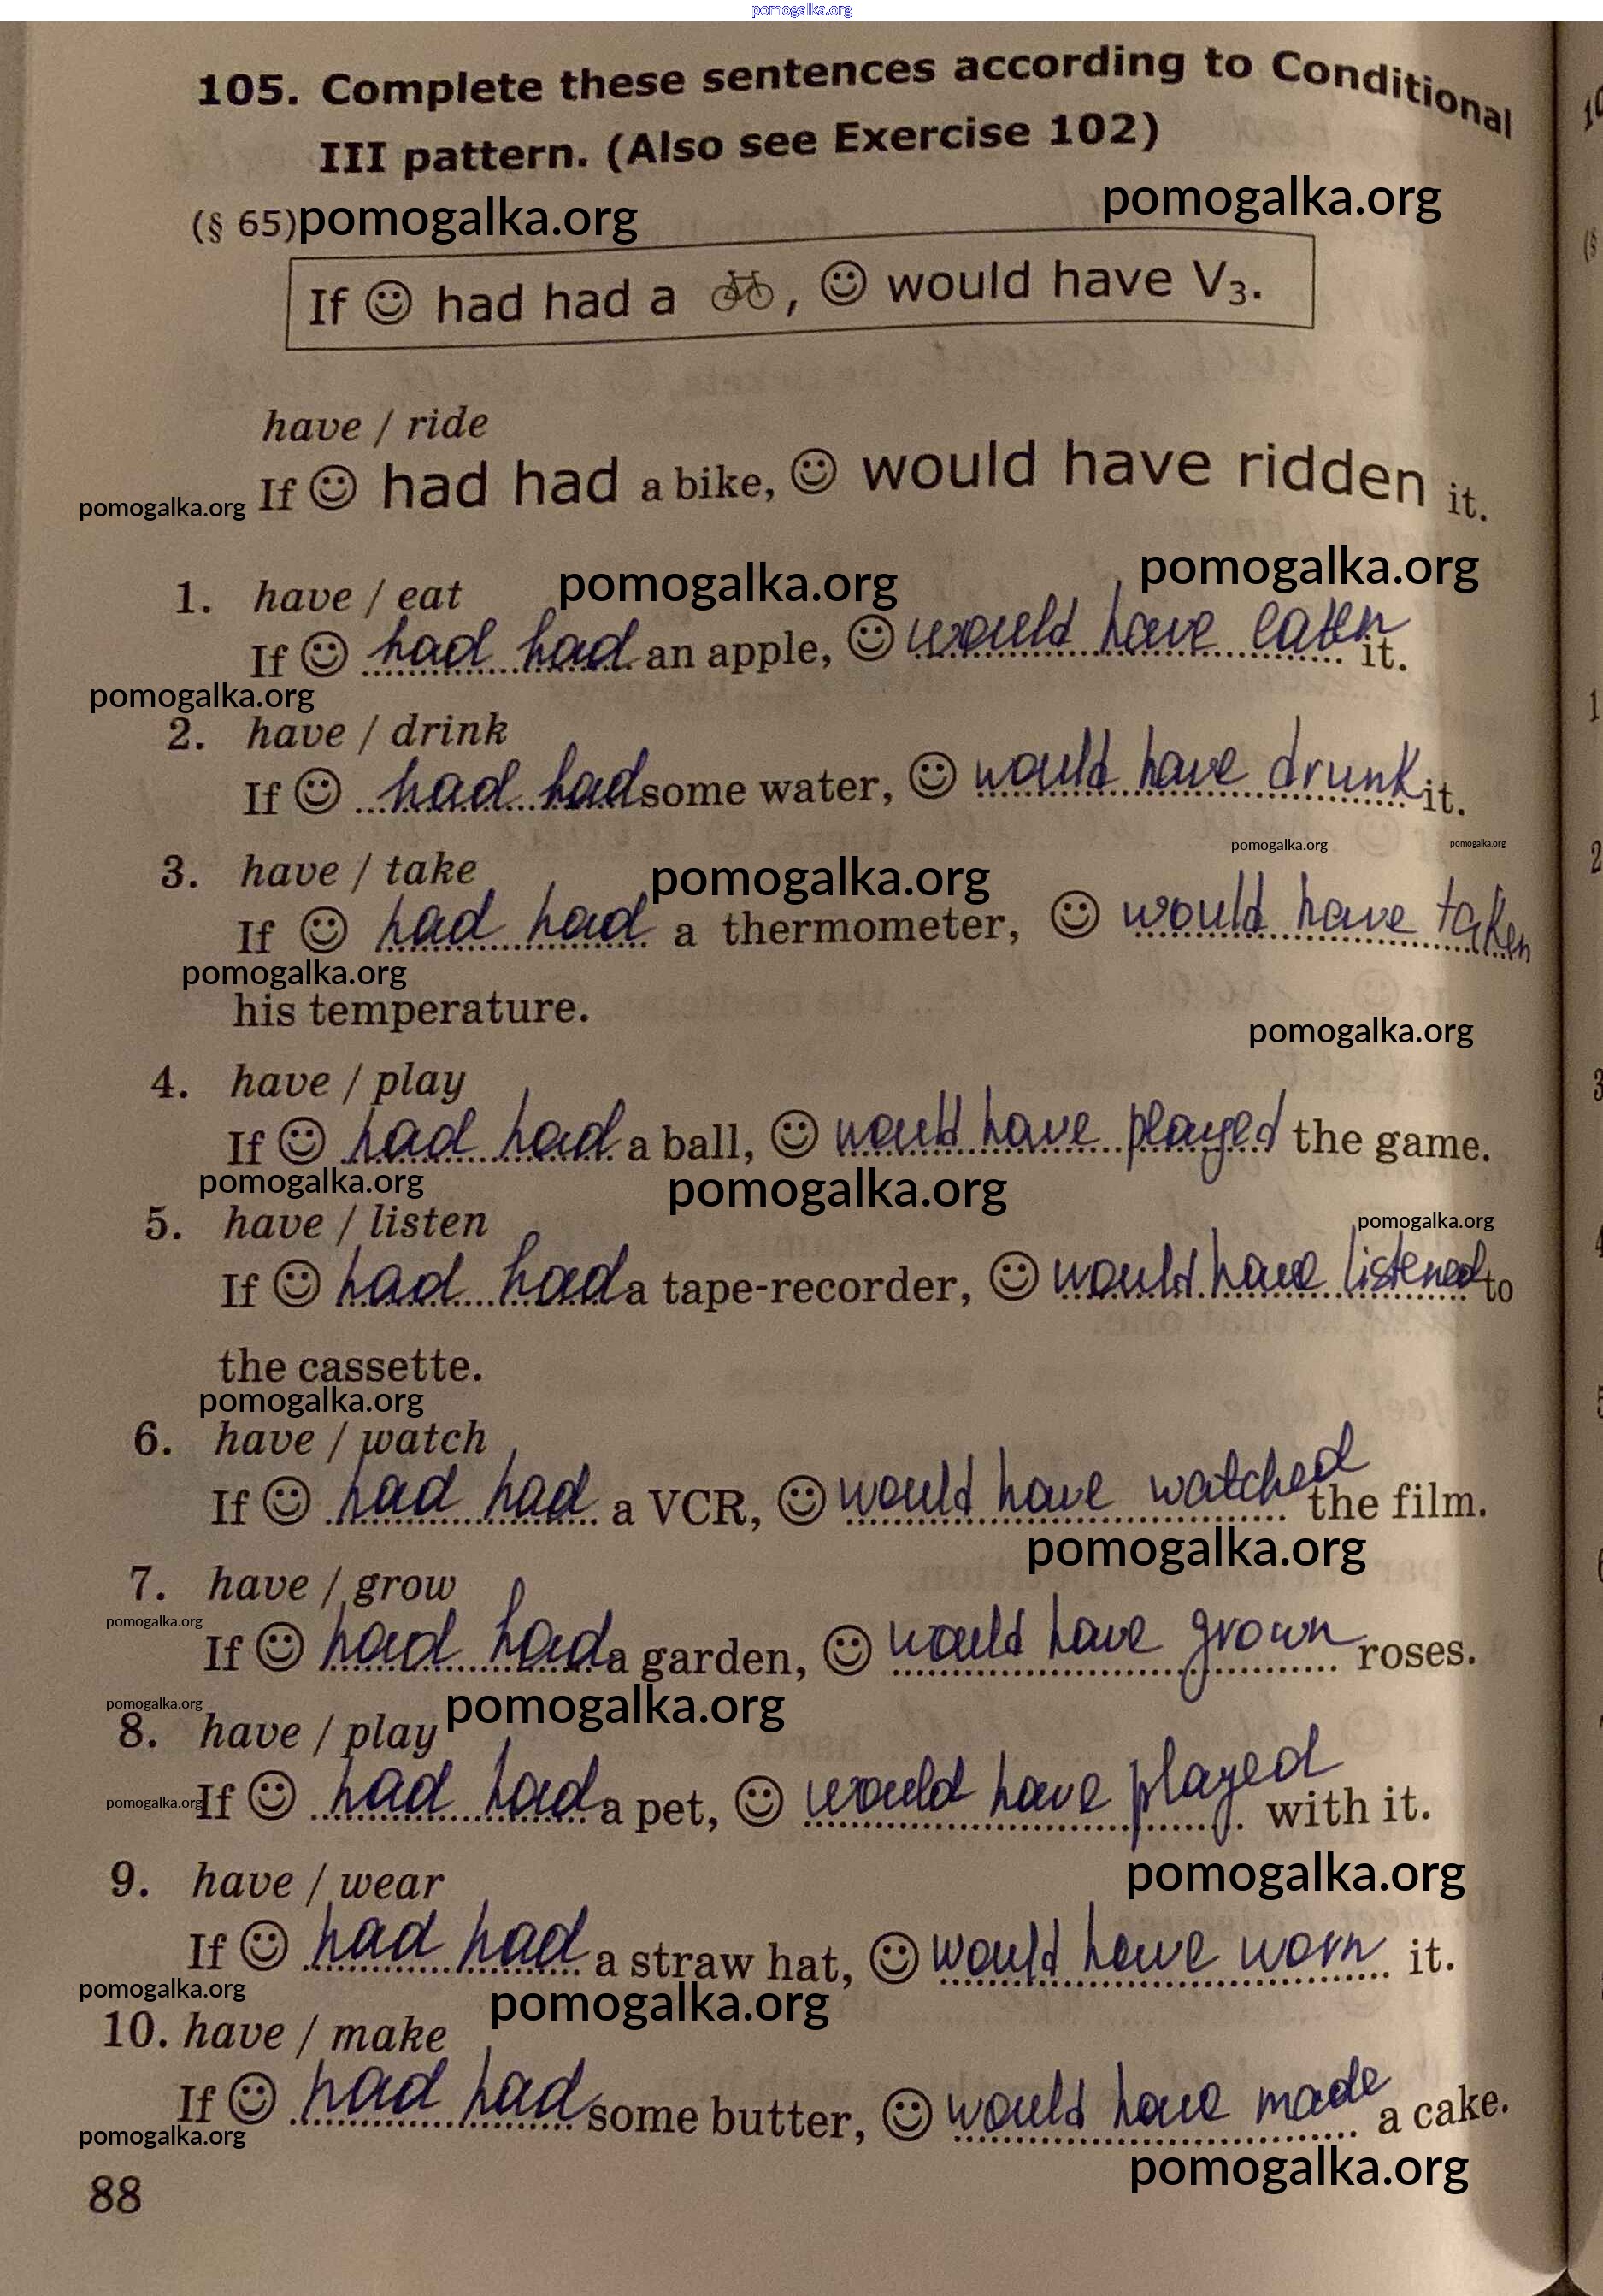 pomogalka.org
105. Complete these sentences according to Conditional
III pattern. (Also see Exercise 102)
pomogalka.org
(§ 65)pomogalka.org
If ☺ had had a 🚲, ☺ would have V₃.
have / ride
If ☺ had had a bike, ☺ would have ridden it.
pomogalka.org
pomogalka.org
pomogalka.org
1. have / eat
If ☺ had had an apple, ☺ would have eaten it.
pomogalka.org
2. have / drink
If ☺ had had some water, ☺ would have drunk it.
pomogalka.org
pomogalka.org
3. have / take
pomogalka.org
If ☺ had had a thermometer, ☺ would have taken
pomogalka.org
his temperature.
pomogalka.org
4. have / play
If ☺ had had a ball, ☺ would have played the game.
pomogalka.org
pomogalka.org
5. have / listen
pomogalka.org
If ☺ had had a tape-recorder, ☺ would have listened to
the cassette.
pomogalka.org
6. have / watch
If ☺ had had a VCR, ☺ would have watched the film.
pomogalka.org
7. have / grow
pomogalka.org
If ☺ had had a garden, ☺ would have grown roses.
pomogalka.org
pomogalka.org
8. have / play
pomogalka.org
If ☺ had had a pet, ☺ would have played with it.
pomogalka.org
9. have / wear
If ☺ had had a straw hat, ☺ would have worn it.
pomogalka.org
pomogalka.org
10. have / make
If ☺ had had some butter, ☺ would have made a cake.
pomogalka.org
pomogalka.org
88